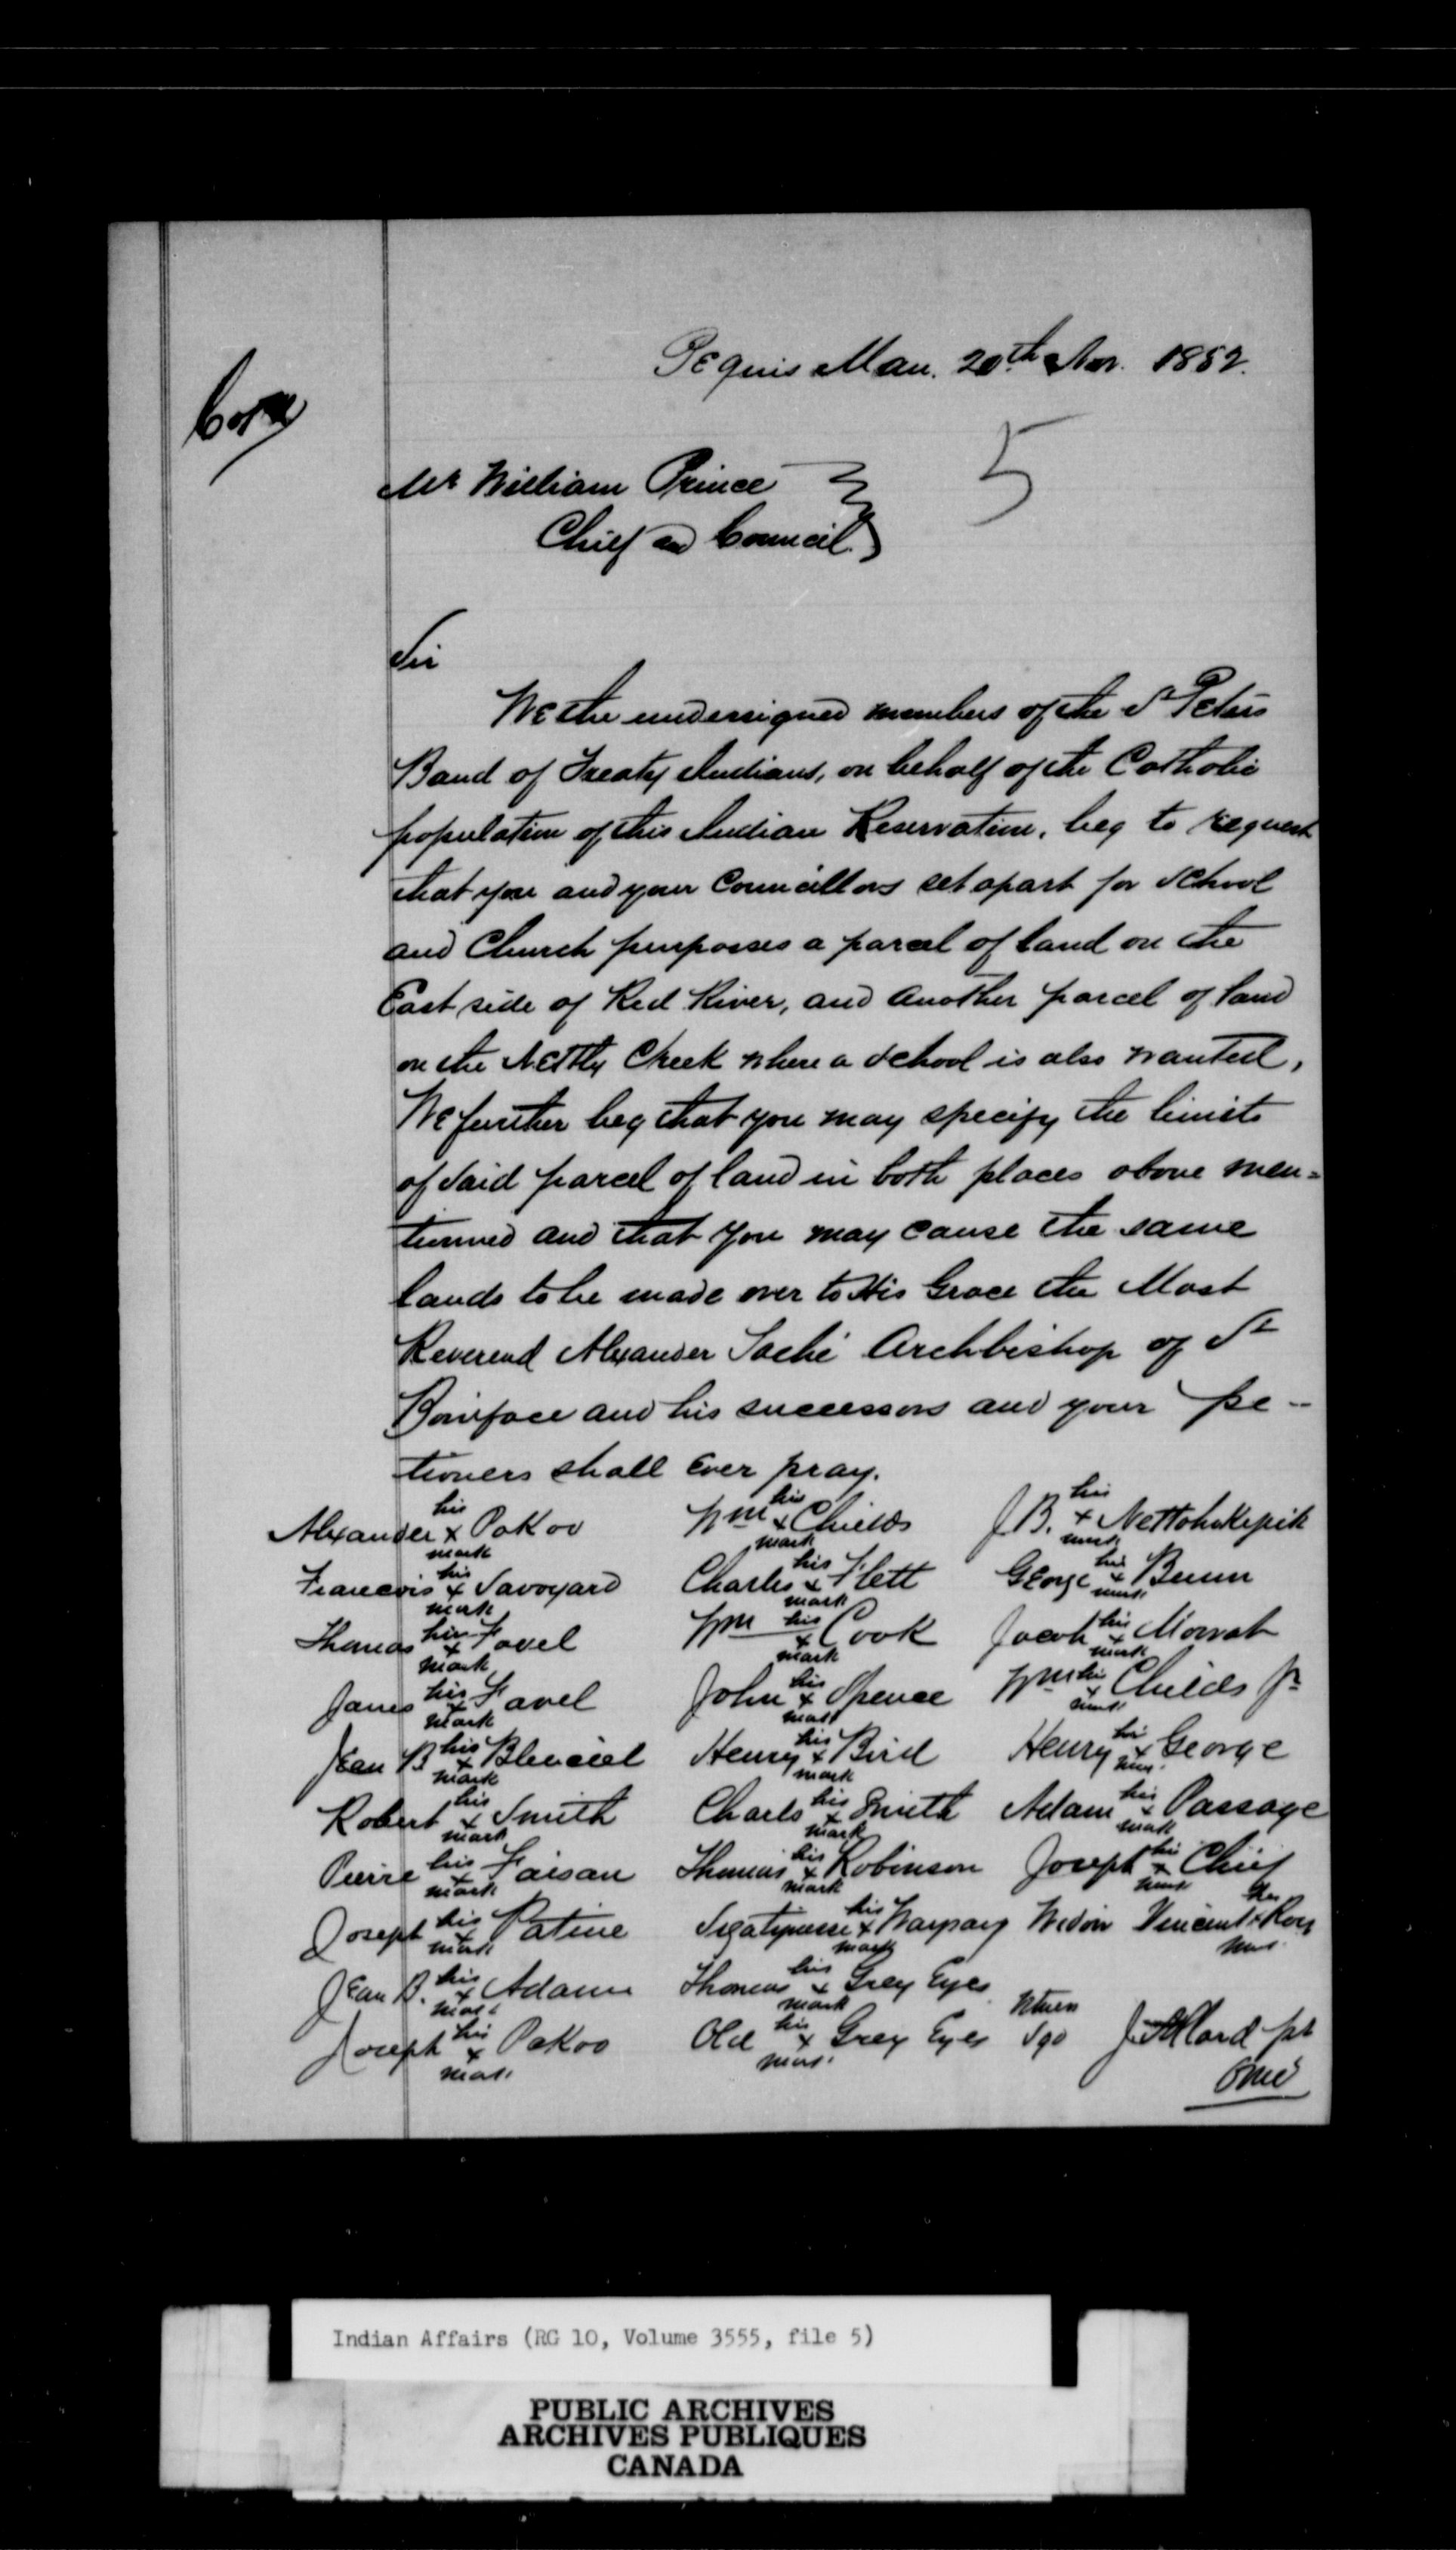 Copy
Peguis Man. 20th Nov. 1882.
5
Mr William Prince
Chief and Council.
Sir
We the undersigned members of the St Peters
Band of Treaty Indians, on behalf of the Catholic
population of this Indian Reservation, beg to request
that you and your Councillors set apart for School
and Church purposes a parcel of land on the
East side of Red River, and another parcel of land
on the Nettly Creek where a School is also wanted,
We further beg that you may specify the limits
of said parcel of land in both places above men=
tioned and that you may cause the same
lands to be made over to His Grace the Most
Reverend Alexander Taché Archbishop of St
Boniface and his successors and your pe-
tioners shall ever pray.
Alexander his x mark Pakoo
Wm his x mark Childs
J B. his x mark
Francois his x mark Savoyard
Charles his x mark Flett
George his x mark Bunn
Thomas his x mark Favel
Wm his x mark Cook
Jacob his x mark Mowat
James his x mark Favel
John his x mark Spence
Wm his x mark Childs Jr
Jean B his x mark
Henry his x mark Bird
Henry his x mark George
Robert his x mark Smith
Charls his x mark Smith
Adam his x mark Passage
Pierre his x mark Faisan
Thomas his x mark Robinson
Joseph his x mark Chief
Joseph his x mark Patine
his x mark
Widow Vincent x Roy mark
Jean B. his x mark Adam
Thomas his x mark Grey Eyes
Joseph his x mark Pakoo
Old his x mark Grey Eyes
Sgd J Allard pt
OMI
Indian Affairs (RG 10, Volume 3555, file 5)
PUBLIC ARCHIVES
ARCHIVES PUBLIQUES
CANADA